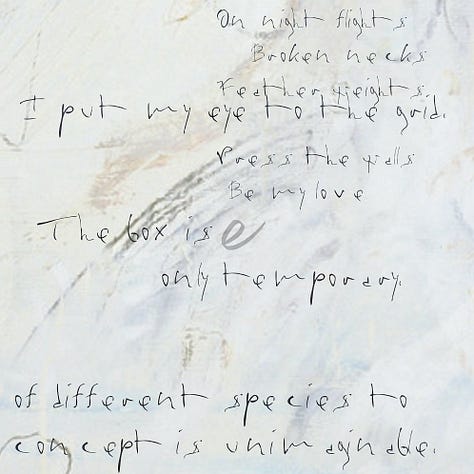 On night flights
Broken necks
Feather weights
I put my eye to the grid.
Press the walls
Be my love
The box is e
only temporary.
of different species to
concept is unimaginable.